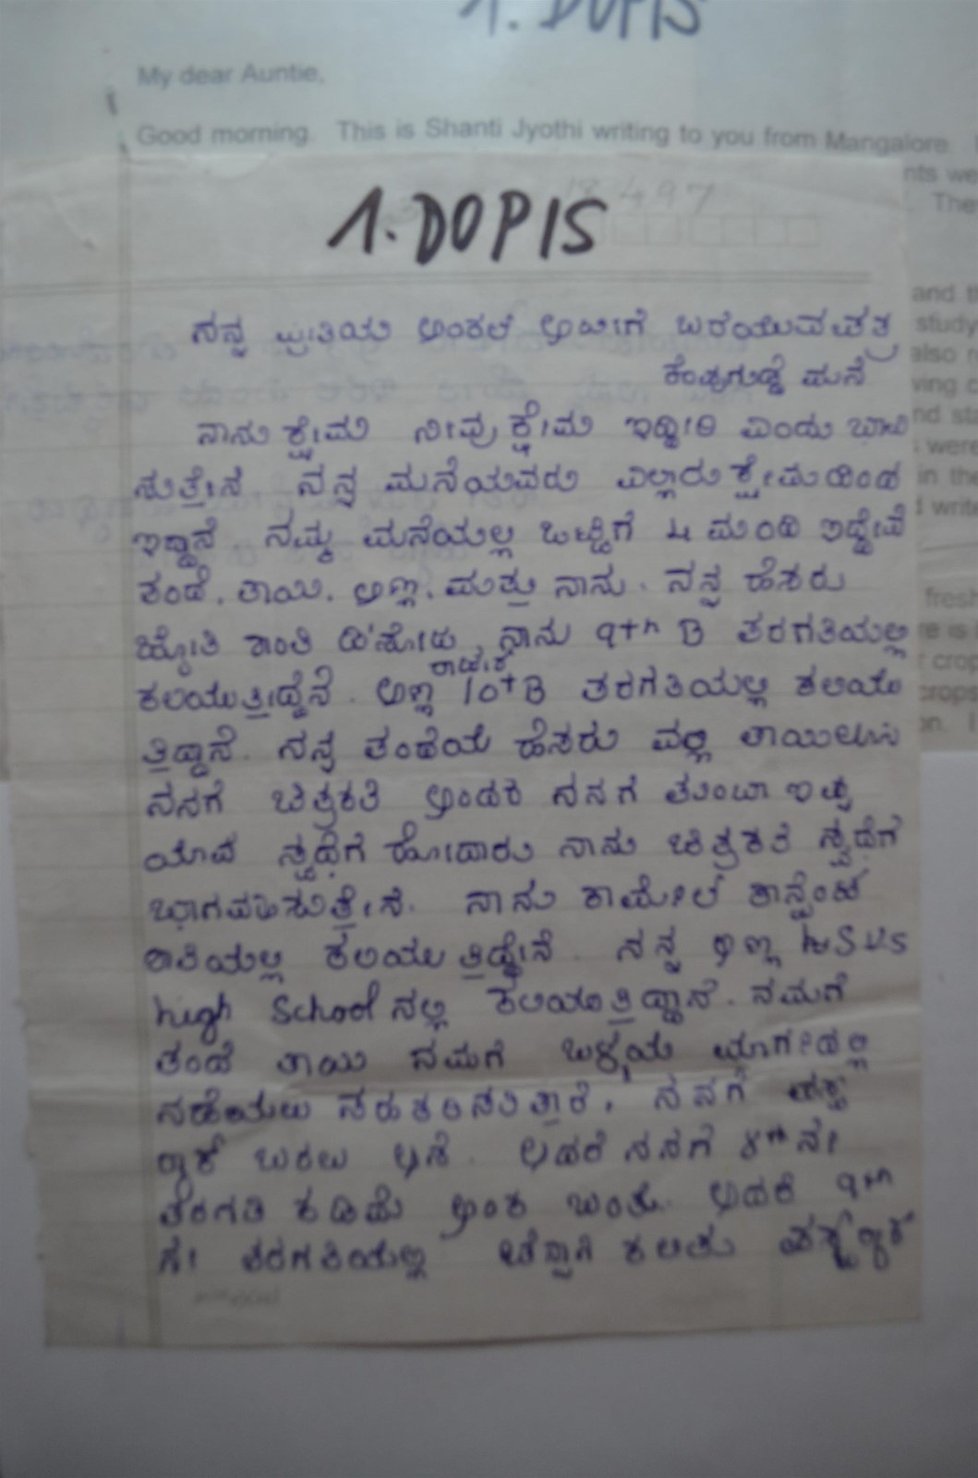 1. DOPIS
My dear Auntie,
Good morning. This is Shanti Jyothi writing to you from Mangalore.
nts we
The
1. DOPIS
and th
study
also r
ving c
nd st
were
in the
write
fresh
re is
crop
crops
on. I
ನನ್ನ ಪ್ರೀತಿಯ ಅಂಕಲ್ ಬರೆಯುವ ಪತ್ರ
ಮನೆ
ನಾನು ಕ್ಷೇಮ ನೀವು ಕ್ಷೇಮ ಎಂದು ಭಾವಿ
ಸುತ್ತೇನೆ ನನ್ನ ಮನೆಯವರು ಎಲ್ಲಾರು ಕ್ಷೇಮದಿಂದ
ಇದ್ದಾನೆ ನಮ್ಮ ಮನೆಯಲ್ಲಿ ಒಟ್ಟಿಗೆ 4 ಮಂದಿ ಇದ್ದೇವೆ
ತಂದೆ, ತಾಯಿ, ಅಣ್ಣ, ಮತ್ತು ನಾನು. ನನ್ನ ಹೆಸರು
ಜ್ಯೋತಿ ಶಾಂತಿ ಡಿ'ಸೋಜ, ನಾನು 9th B ತರಗತಿಯಲ್ಲಿ
ಕಲಿಯುತ್ತಿದ್ದೇನೆ. ಅಣ್ಣ 10th B ತರಗತಿಯಲ್ಲಿ ಕಲಿಯು
ತ್ತಿದ್ದಾನೆ. ನನ್ನ ತಂದೆಯ ಹೆಸರು ತಾಯಿ
ನನಗೆ ಚಿತ್ರಕತೆ ಅಂದರೆ ನನಗೆ ತುಂಬಾ ಇಷ್ಟ
ಯಾವ ಸ್ಪರ್ಧೆಗೆ ನಾನು ಚಿತ್ರಕತೆ ಸ್ಪರ್ಧೆಗೆ
ಭಾಗವಹಿಸುತ್ತೇನೆ. ನಾನು ಕಾರ್ಮೆಲ್ ಕಾನ್ವೆಂಟ್
ಶಾಲೆಯಲ್ಲಿ ಕಲಿಯುತ್ತಿದ್ದೇನೆ. ನನ್ನ ಅಣ್ಣ
high School ನಲ್ಲಿ ಕಲಿಯುತ್ತಿದ್ದಾನೆ. ನಮಗೆ
ತಂದೆ ತಾಯಿ ನಮಗೆ ಒಳ್ಳೆಯ ಮಾರ್ಗದಲ್ಲಿ
ನಡೆಯಲು ನನಗೆ
ಬರಲು ಆಸೆ. ಆದರೆ ನನಗೆ 8th ನೇ
ತರಗತಿ ಕಡಿಮೆ ಅಂಕ ಬಂತು. ಆದರೆ 9th
ನೇ ತರಗತಿಯಲ್ಲಿ ಕಲಿತು